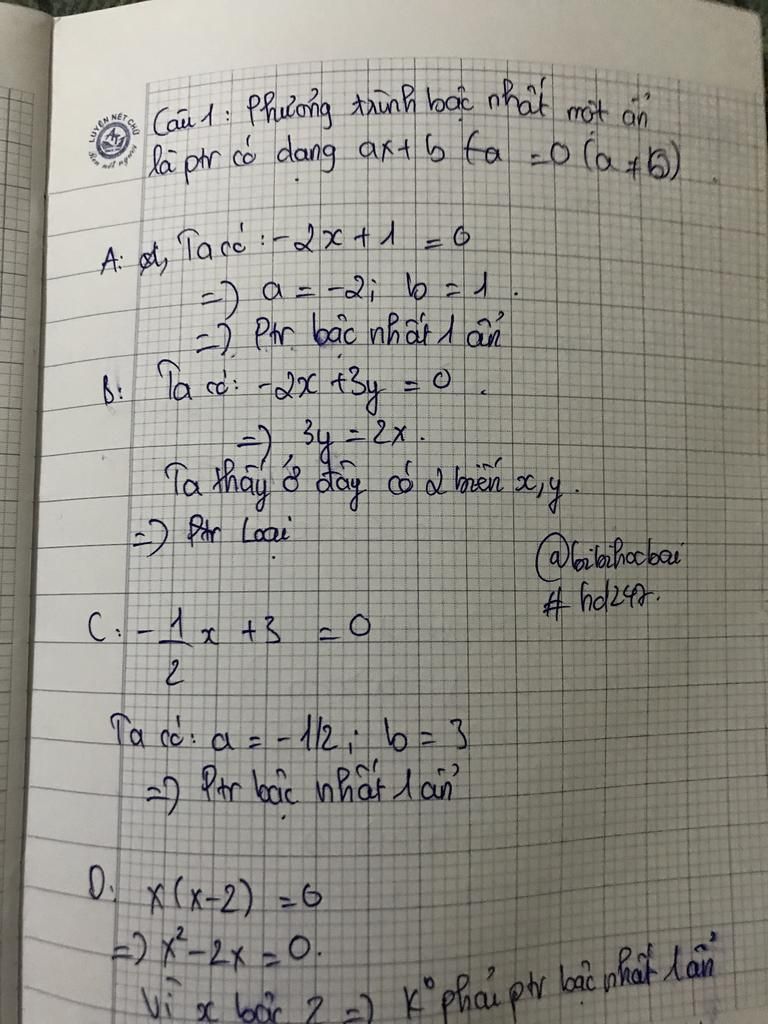 LUYỆN NÉT CHỮ
Rèn nết người
Câu 1: Phương trình bậc nhất một ẩn
là ptr có dạng ax + b = 0 (a ≠ 0)
A: Ta có: -2x + 1 = 0
=> a = -2; b = 1.
=> Ptr bậc nhất 1 ẩn
B: Ta có: -2x + 3y = 0.
=> 3y = 2x.
Ta thấy ở đây có 2 biến x, y.
=> Ptr Loại
@bibihocbai
# hd247.
C: -1/2 x + 3 = 0
Ta có: a = -1/2; b = 3
=> Ptr bậc nhất 1 ẩn
D: x(x-2) = 0
=> x² - 2x = 0.
Vì x bậc 2 => K° phải ptr bậc nhất 1 ẩn